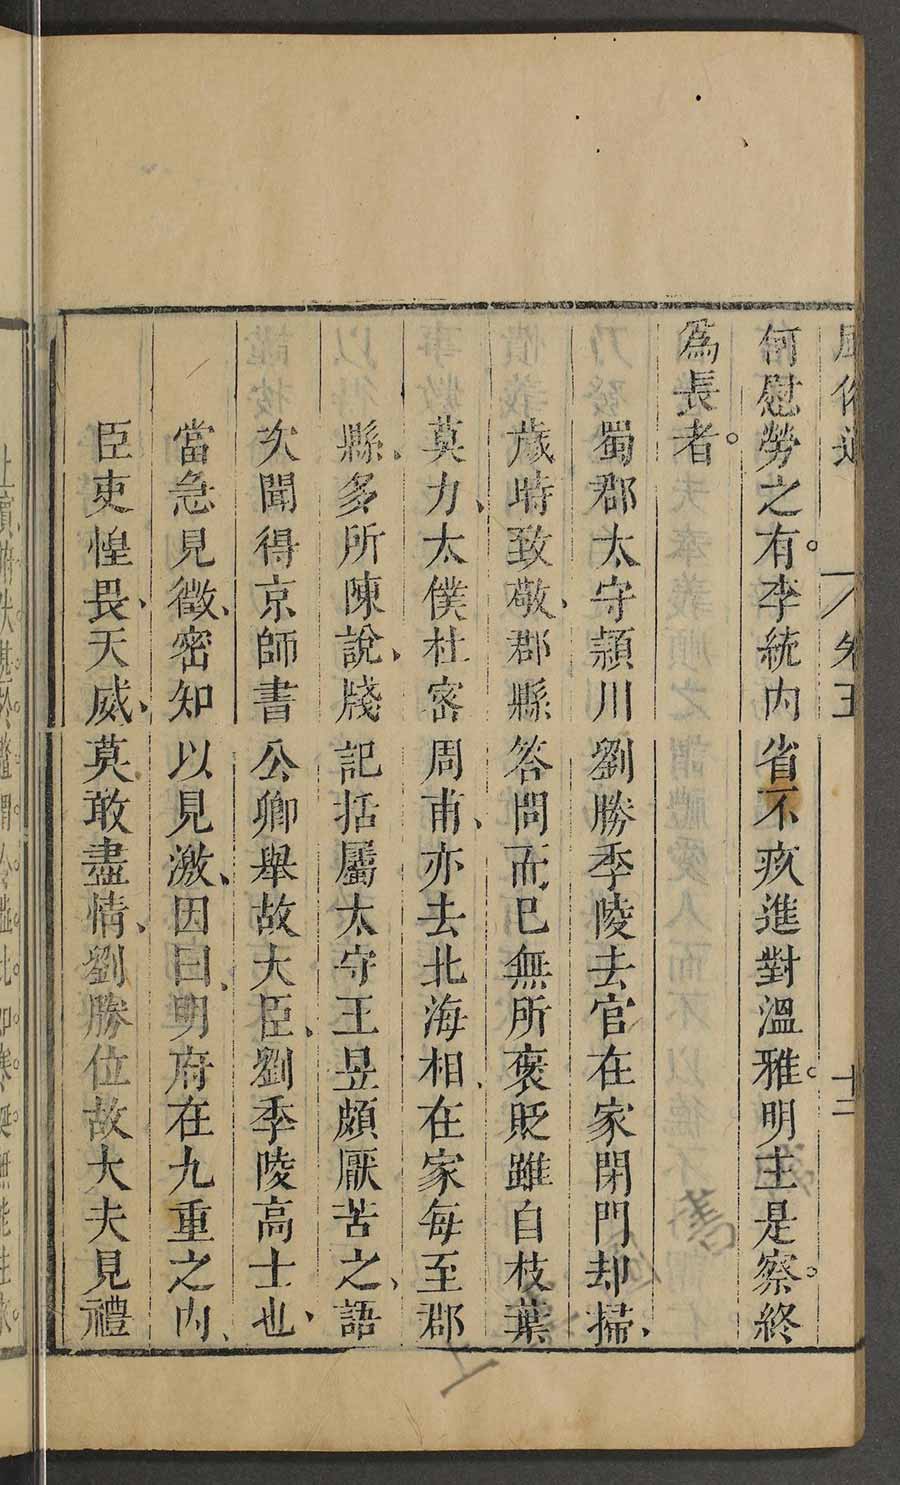 風俗通 卷五 十二
何慰勞之有。李統內省不疚進對溫雅。明主是察。終
為長者。
蜀郡太守頴川劉勝季陵去官在家閉門却掃、
歲時致敬、郡縣答問而已無所褒貶雖自枝葉
莫力、太僕杜密周甫、亦去北海相、在家每至郡
縣、多所陳說、牋記括屬太守王昱頗厭苦之、語
次聞得京師書公卿舉故大臣、劉季陵高士也、
當急見徵、密知以見激、因曰、明府在九重之内、
臣吏惶畏、天威、莫敢盡情、劉勝位故大夫見禮